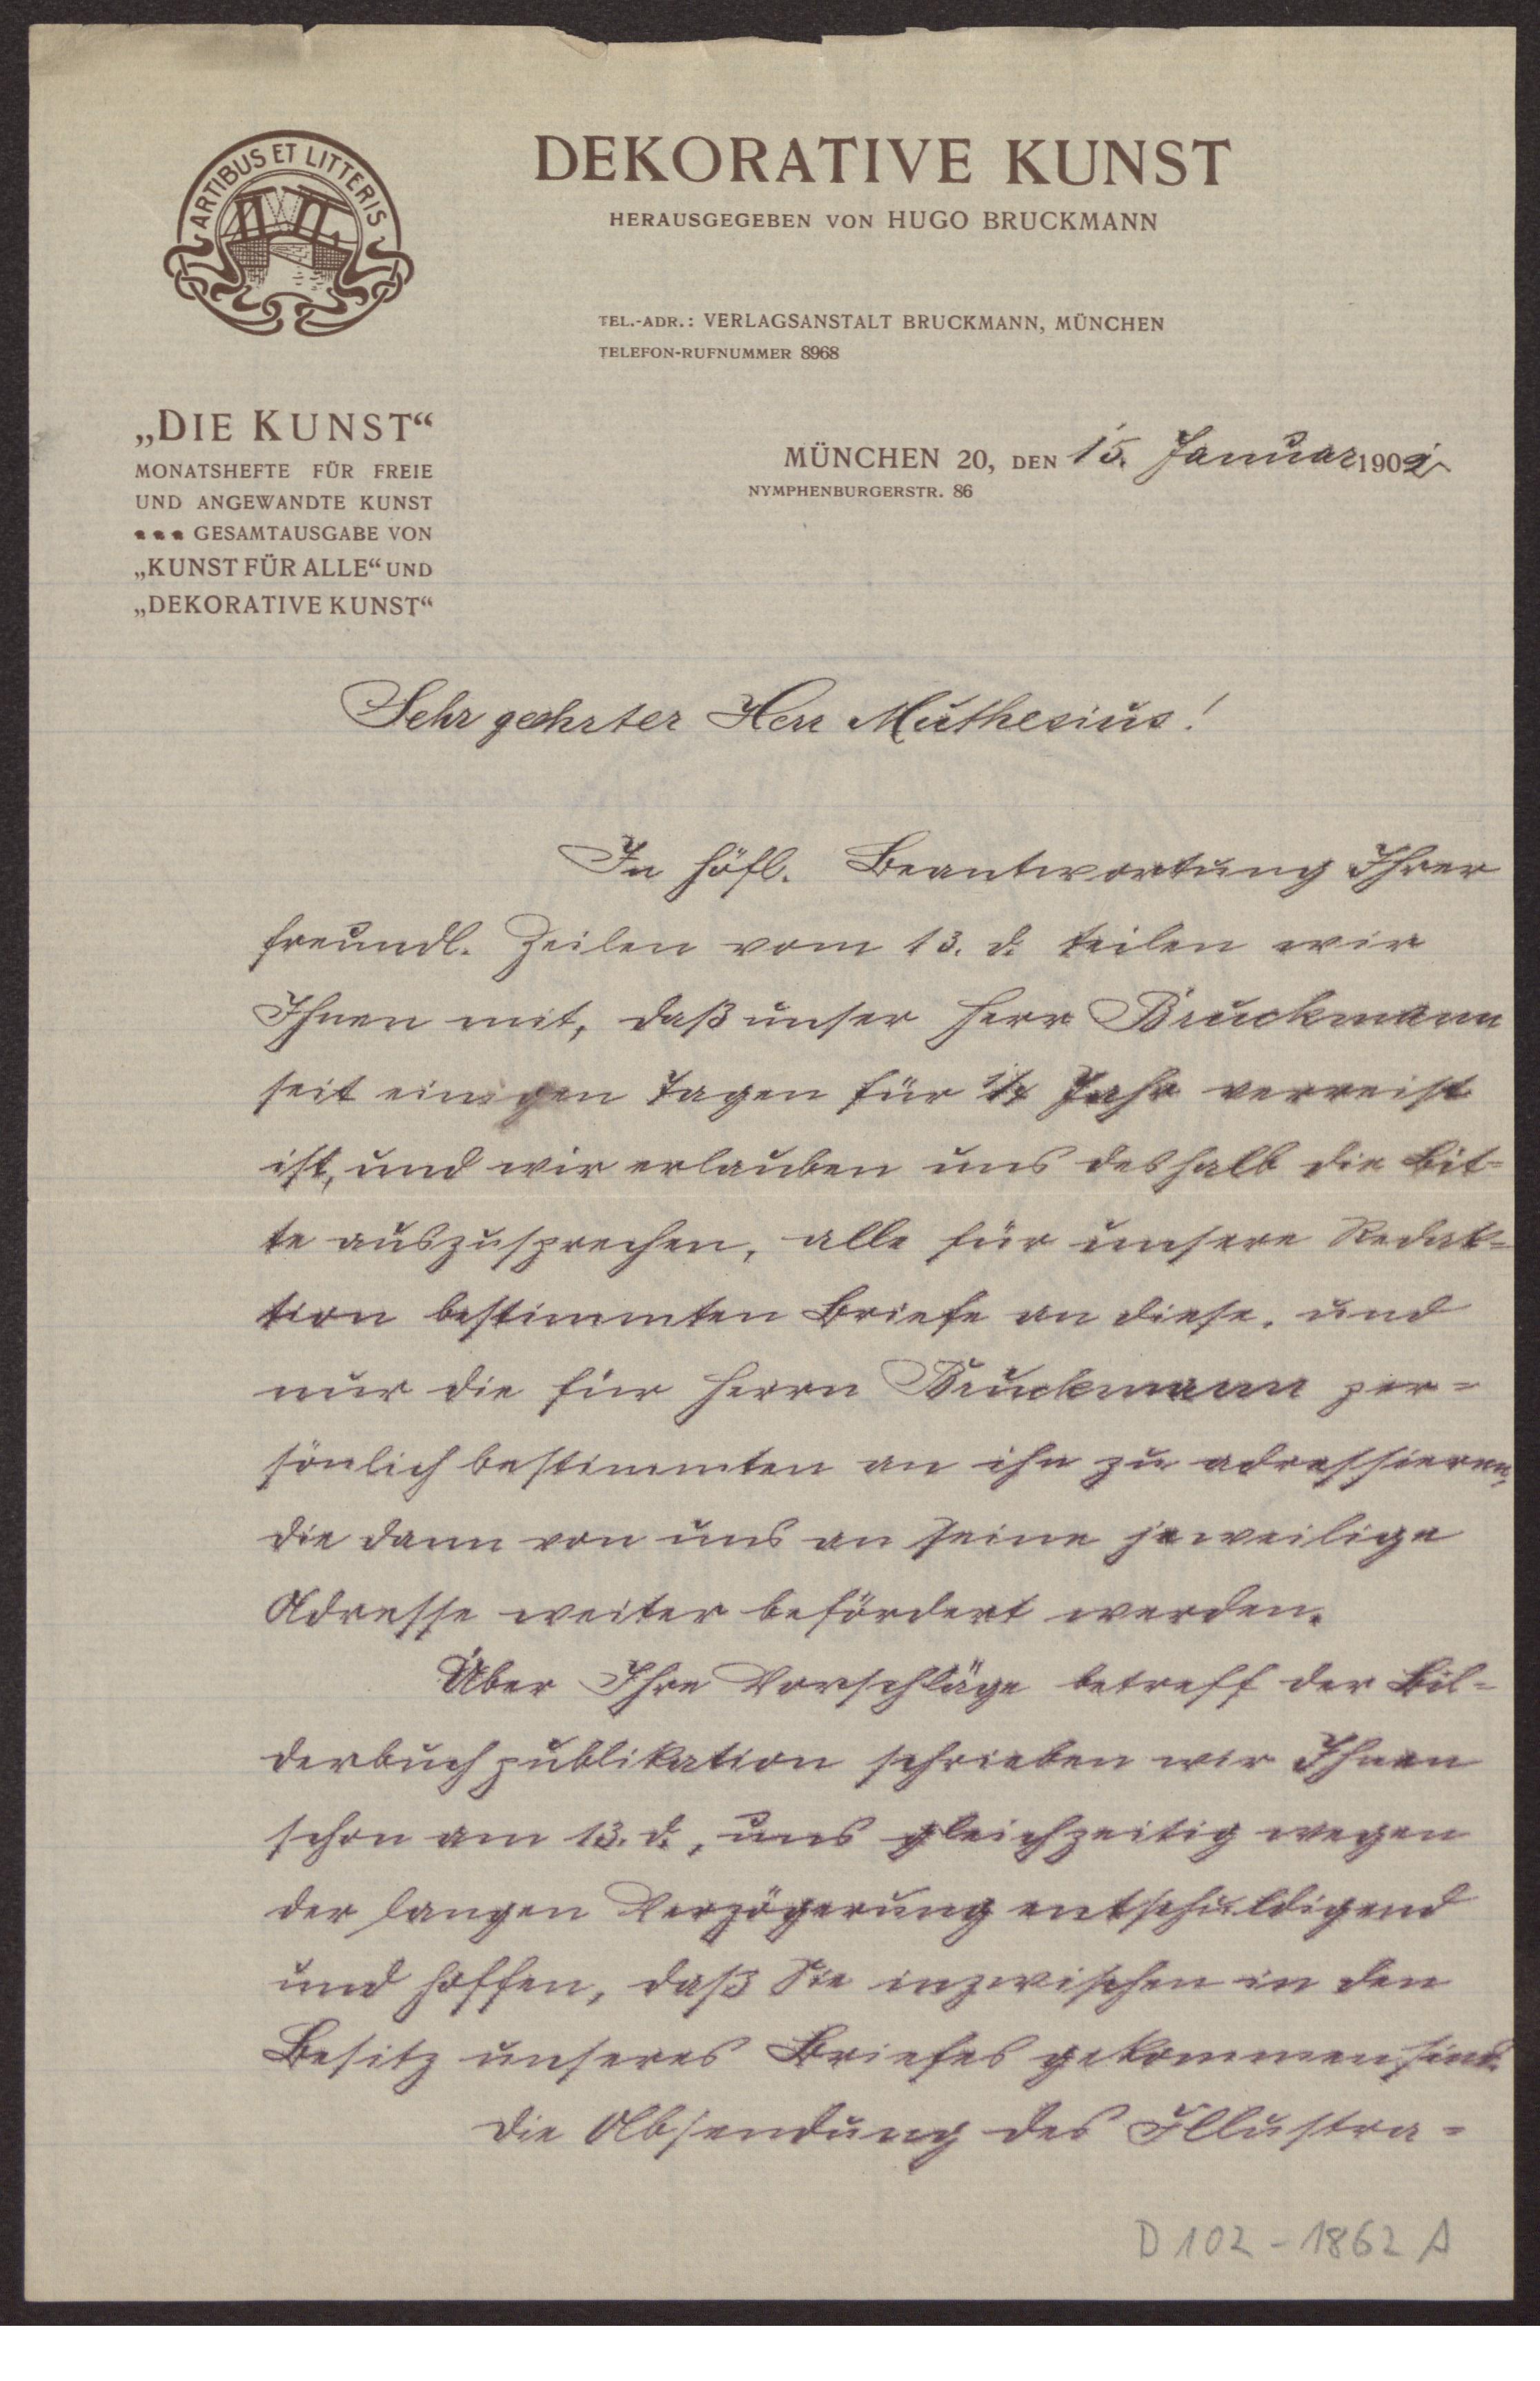 ARTIBUS ET LITTERIS
DEKORATIVE KUNST
HERAUSGEGEBEN VON HUGO BRUCKMANN
TEL.-ADR.: VERLAGSANSTALT BRUCKMANN, MÜNCHEN
TELEFON-RUFNUMMER 8968
„DIE KUNST“
MONATSHEFTE FÜR FREIE
UND ANGEWANDTE KUNST
GESAMTAUSGABE VON
„KUNST FÜR ALLE“ UND
„DEKORATIVE KUNST“
MÜNCHEN 20, DEN 15. Januar 190
NYMPHENBURGERSTR. 86
Sehr geehrter Herr Muthesius!
In höfl. Beantwortung Ihrer
freundl. Zeilen vom 13. d. teilen wir
Ihnen mit, daß unser Herr Bruckmann
seit einigen Tagen für 1/4 Jahr verreist
ist, und wir erlauben uns deshalb die Bit-
te auszusprechen, alle für unsere Redak-
tion bestimmten Briefe an diese, und
nur die für Herrn Bruckmann per-
sönlich bestimmten an ihn zu adressieren,
die dann von uns an seine jeweilige
Adresse weiter befördert werden.
Über Ihre Vorschläge betreff der Bil-
derbuchpublikation schrieben wir Ihnen
schon am 13. d., uns gleichzeitig wegen
der langen Verzögerung entschuldigend
und hoffen, daß Sie inzwischen in den
Besitz unseres Briefes gekommen sind.
Die Absendung des Illustra-
D 102 - 1862 A